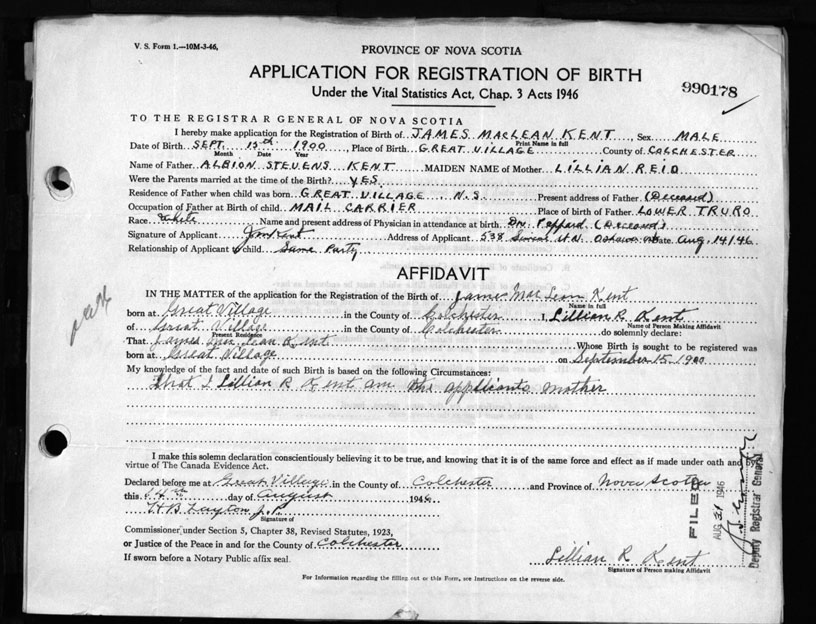 V. S. Form 1.—10M-3-46.
PROVINCE OF NOVA SCOTIA
APPLICATION FOR REGISTRATION OF BIRTH
990178
Under the Vital Statistics Act, Chap. 3 Acts 1946
TO THE REGISTRAR GENERAL OF NOVA SCOTIA
I hereby make application for the Registration of Birth of JAMES MACLEAN KENT, Sex MALE
Print Name in full
Date of Birth SEPT. 15th 1900 Place of Birth GREAT VILLAGE County of COLCHESTER
Month Date Year
Name of Father ALBION STEVENS KENT MAIDEN NAME of Mother LILLIAN REID
Were the Parents married at the time of the Birth? YES
Residence of Father when child was born GREAT VILLAGE, N.S. Present address of Father (Deceased)
Occupation of Father at Birth of child MAIL CARRIER Place of birth of Father LOWER TRURO
Race White Name and present address of Physician in attendance at birth Dr. Peppard (Deceased)
Signature of Applicant JM Kent Address of Applicant 538 Simcoe St. N. Oshawa Date Aug. 14/46
Relationship of Applicant to child Same Party
AFFIDAVIT
IN THE MATTER of the application for the Registration of the Birth of James MacLean Kent
Name in full
born at Great Village in the County of Colchester I, Lillian R Kent
Name of Person Making Affidavit
of Great Village in the County of Colchester do solemnly declare:
Present Residence
That James MacLean Kent Whose Birth is sought to be registered was
born at Great Village on September 15 1900
My knowledge of the fact and date of such Birth is based on the following Circumstances:
that I Lillian R Kent am the applicants mother
I make this solemn declaration conscientiously believing it to be true, and knowing that it is of the same force and effect as if made under oath and by
virtue of The Canada Evidence Act.
Declared before me at Great Village in the County of Colchester and Province of Nova Scotia
this 14th day of August 1946
H B Layton J.P.
Signature of
Commissioner under Section 5, Chapter 38, Revised Statutes, 1923,
or Justice of the Peace in and for the County of Colchester
If sworn before a Notary Public affix seal.
Lillian R Kent
Signature of Person making Affidavit
For Information regarding the filling out of this Form, see Instructions on the reverse side.
FILED
AUG 21 1946
Deputy Registrar General